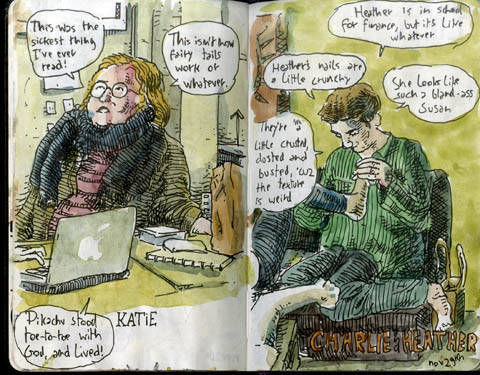 This was the
sickest thing
I've ever
read!
This isn't how
fairy tails
work or
whatever.
Pikachu stood
toe-to-toe with
God, and Lived!
KATIE
Heather is in school
for finance, but it's like
whatever
Heather's nails are
a little crunchy
She looks like
such a bland-ass
Susan
They're a
little crusted,
dosted and
busted, 'cuz
the texture
is weird
CHARLIE HEATHER
nov 29th